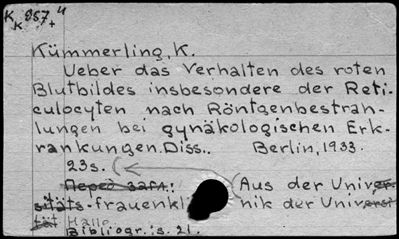 K K 957 4 +
Kümmerling, K.
Ueber das Verhalten des roten
Blutbildes insbesondere der Reti-
culocyten nach Röntgenbestrah-
lungen bei gynäkologischen Erk-
rankungen. Diss.. Berlin, 1933.
23s.
Перед загл.: (Aus der Univer-
sitäts-frauenkl nik der Universi
tät Halle.
Bibliogr.: s. 21.